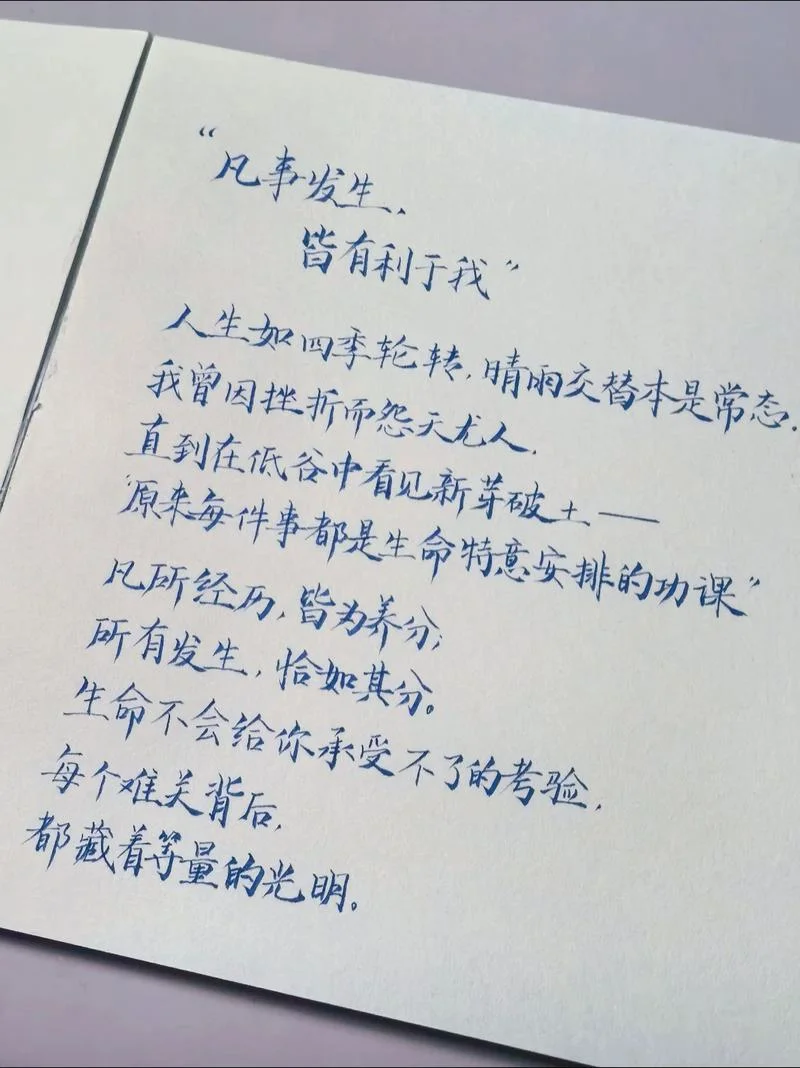 “凡事发生、
皆有利于我”
人生如四季轮转,晴雨交替本是常态.
我曾因挫折而怨天尤人.
直到在低谷中看见新芽破土——
“原来每件事都是生命特意安排的功课”
凡所经历,皆为养分;
所有发生,恰如其分。
生命不会给你承受不了的考验,
每个难关背后,
都藏着等量的光明。